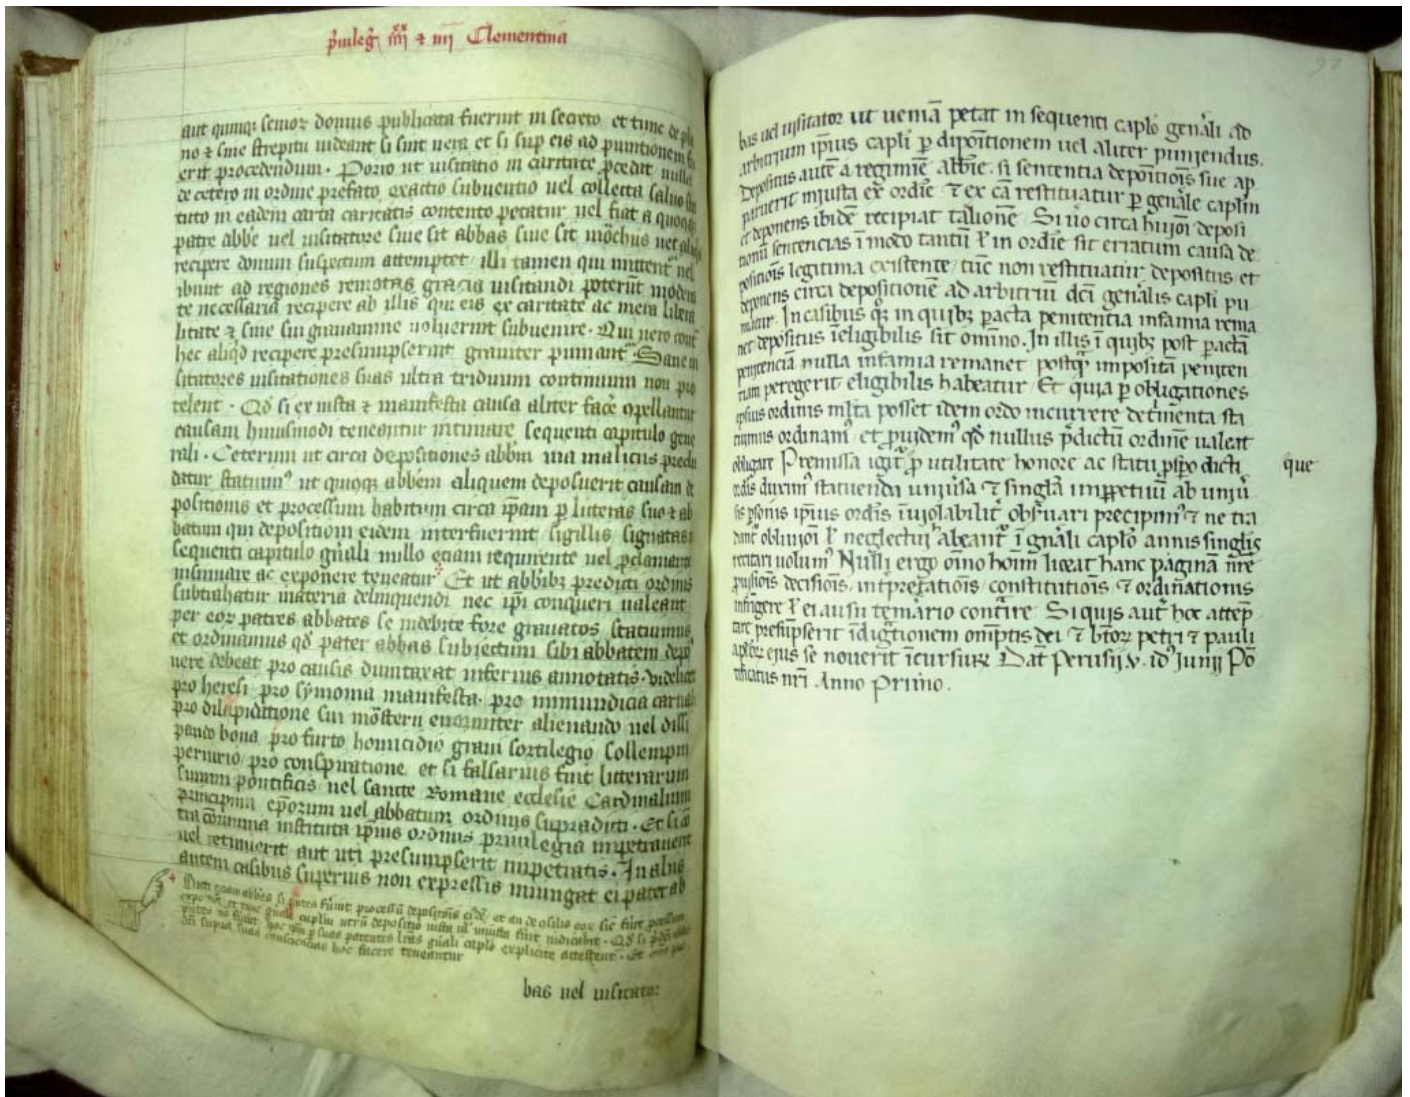 p̄uileḡ iiii^xx et iiii Clementina
aut quinqꝫ senioꝝ domus publicata fuerint in secreto et tunc de pla
no ⁊ sine strepitu uideant si sint uera et si sup eis ad punitionem
erit procedendum. Porro ut uisitatio in caritate pcedat nulla
de cetero in ordine prefato exactio subuentio uel collecta saluo
tuto in eadem carta caritatis contento petatur uel fiat a quoqꝫ
patre abbe uel uisitatore siue sit abbas siue sit mōchus nec
recipere donum suspectum attemptet illi tamen qui mittent̄ uel
ibunt ad regiones remotas gracia uisitandi poterūt
te necessaria recipere ab illis qui eis ex caritate ac mera libera
litate ⁊ sine sui grauamine uoluerint subuenire. Qui uero cont̄
hec aliqd recipere presumpserint grauiter puniant̄. Sane
sitatores uisitationes suas ultra triduum continuum non pro
telent. Qd̄ si ex iusta ⁊ manifesta causa aliter fac̄e
causam huiusmodi teneantur intimare sequenti capitulo gene
rali. Ceterum ut circa depositiones abbm̄ uia maliciis preclu
datur statuimꝰ ut quoqꝫ abbēm aliquem deposuerit causam de
positionis et processum habitum circa ip̄am p litteras suo ⁊ ab
batum qui depositioni eidem interfuerint sigillis signatas
sequenti capitulo gn̄ali nullo etiam requirente uel pclamante
insinuare ac exponere teneatur. Et ut abbībꝫ predicti ordinis
subtrahatur materia delinquendi nec ip̄i conqueri ualeant
per eoꝝ patres abbates se indebite fore grauatos statuimus
et ordinamus qd̄ pater abbas subiectum sibi abbatem depo
nere debeat pro causis duntaxat inferius annotatis. videlicet
pro heresi pro symonia manifesta. pro inmundicia carnali
pro dilapidatione sui mōsterii enormiter alienando uel dissi
pando bona pro furto homicidio graui sortilegio sollempni
periurio pro conspiratione et si falsarius fuit litterarum
summi pontificis uel sancte Romane ecclesie Cardinalium
principum ep̄orum uel abbatum ordinis supradicti. Et si cō
tra cōmunia instituta ipius ordinis priuilegia inpetrauerit
uel retinuerit aut uti presumpserit inpetratis. In aliis
autem casibus superius non expressis iniungat ei pater ab
abbes si p̄ntes fūint processū depositōis
et tunc gn̄ale caplm utrū depositio iusta ul' iniusta fūit iudicabit. Qd̄ si
p̄ntes nō fūint hoc ipm p suas patentes lr̄as gn̄ali caplo explicite attestent̄.
supra suas consciencias hoc facere teneantur
bas uel uisitator
bas uel uisitator ut ueniā petat in sequenti caplō gen̄ali ad
arbitrium ip̄ius capli p̄ dipōitionem uel aliter puniendus.
Depositus autē a regimīe abb̄ie. si sententia depōitiōis sue ap
paruerit iniusta ex ordīe ⁊ ex cā restituatur p gen̄ale caplm
et deponens ibidē recipiat talionē Si ūo circa huiōi deposi
tionū sentencias ī modo tantū l' in ordīe sit erratum causa de
positiōis legitima existente tūc non restituatur depositus et
deponens circa depositionē ad arbitriū dcī gen̄alis capli pu
niatur. In casibus qꝫ in quibꝫ pacta penitentia infamia rema
net depositus īeligibilis sit omīno. In illis ī quibꝫ post pactā
penitenciā nulla infamia remanet postqꝫ impositā peniten
tiam peregerit eligibilis habeatur Et quia p obligationes
ipsius ordinis ml̄ta posset idem ordo incurrere det̄menta sta
tuimus ordinamꝰ et puidemꝰ qd̄ nullus p̄dictū ordinē ualeat
obligare Premissa igit̄ p utilitate honore ac statu pspo dicti que
ordīs duximꝰ statuenda uniūsa ⁊ singl̄a inppetuū ab uniū
sis psonis ipius ordīs īuiolabilit̄ obsuari precipimꝰ ⁊ ne tra
dant̄ obliuiōi l' neglectui habeant̄ ī gn̄ali caplō annis singlīs
recitari uolumꝰ Nulli ergo oīno hoīm liceat hanc paginā nr̄e
puisiōis decisiōis. intpretatiōis constitutiōis ⁊ ordinationis
infringere l' ei ausu temārio cont̄ire Si quis aut̄ hoc attēp
tare presūpserit īdigtionem omptis dei ⁊ bt̄oꝝ petri ⁊ pauli
apl̄oꝝ ejus se nouerit īcursuꝝ Dat̄ Perusii v. id' Junij Pō
tificatus nr̄i Anno Primo.